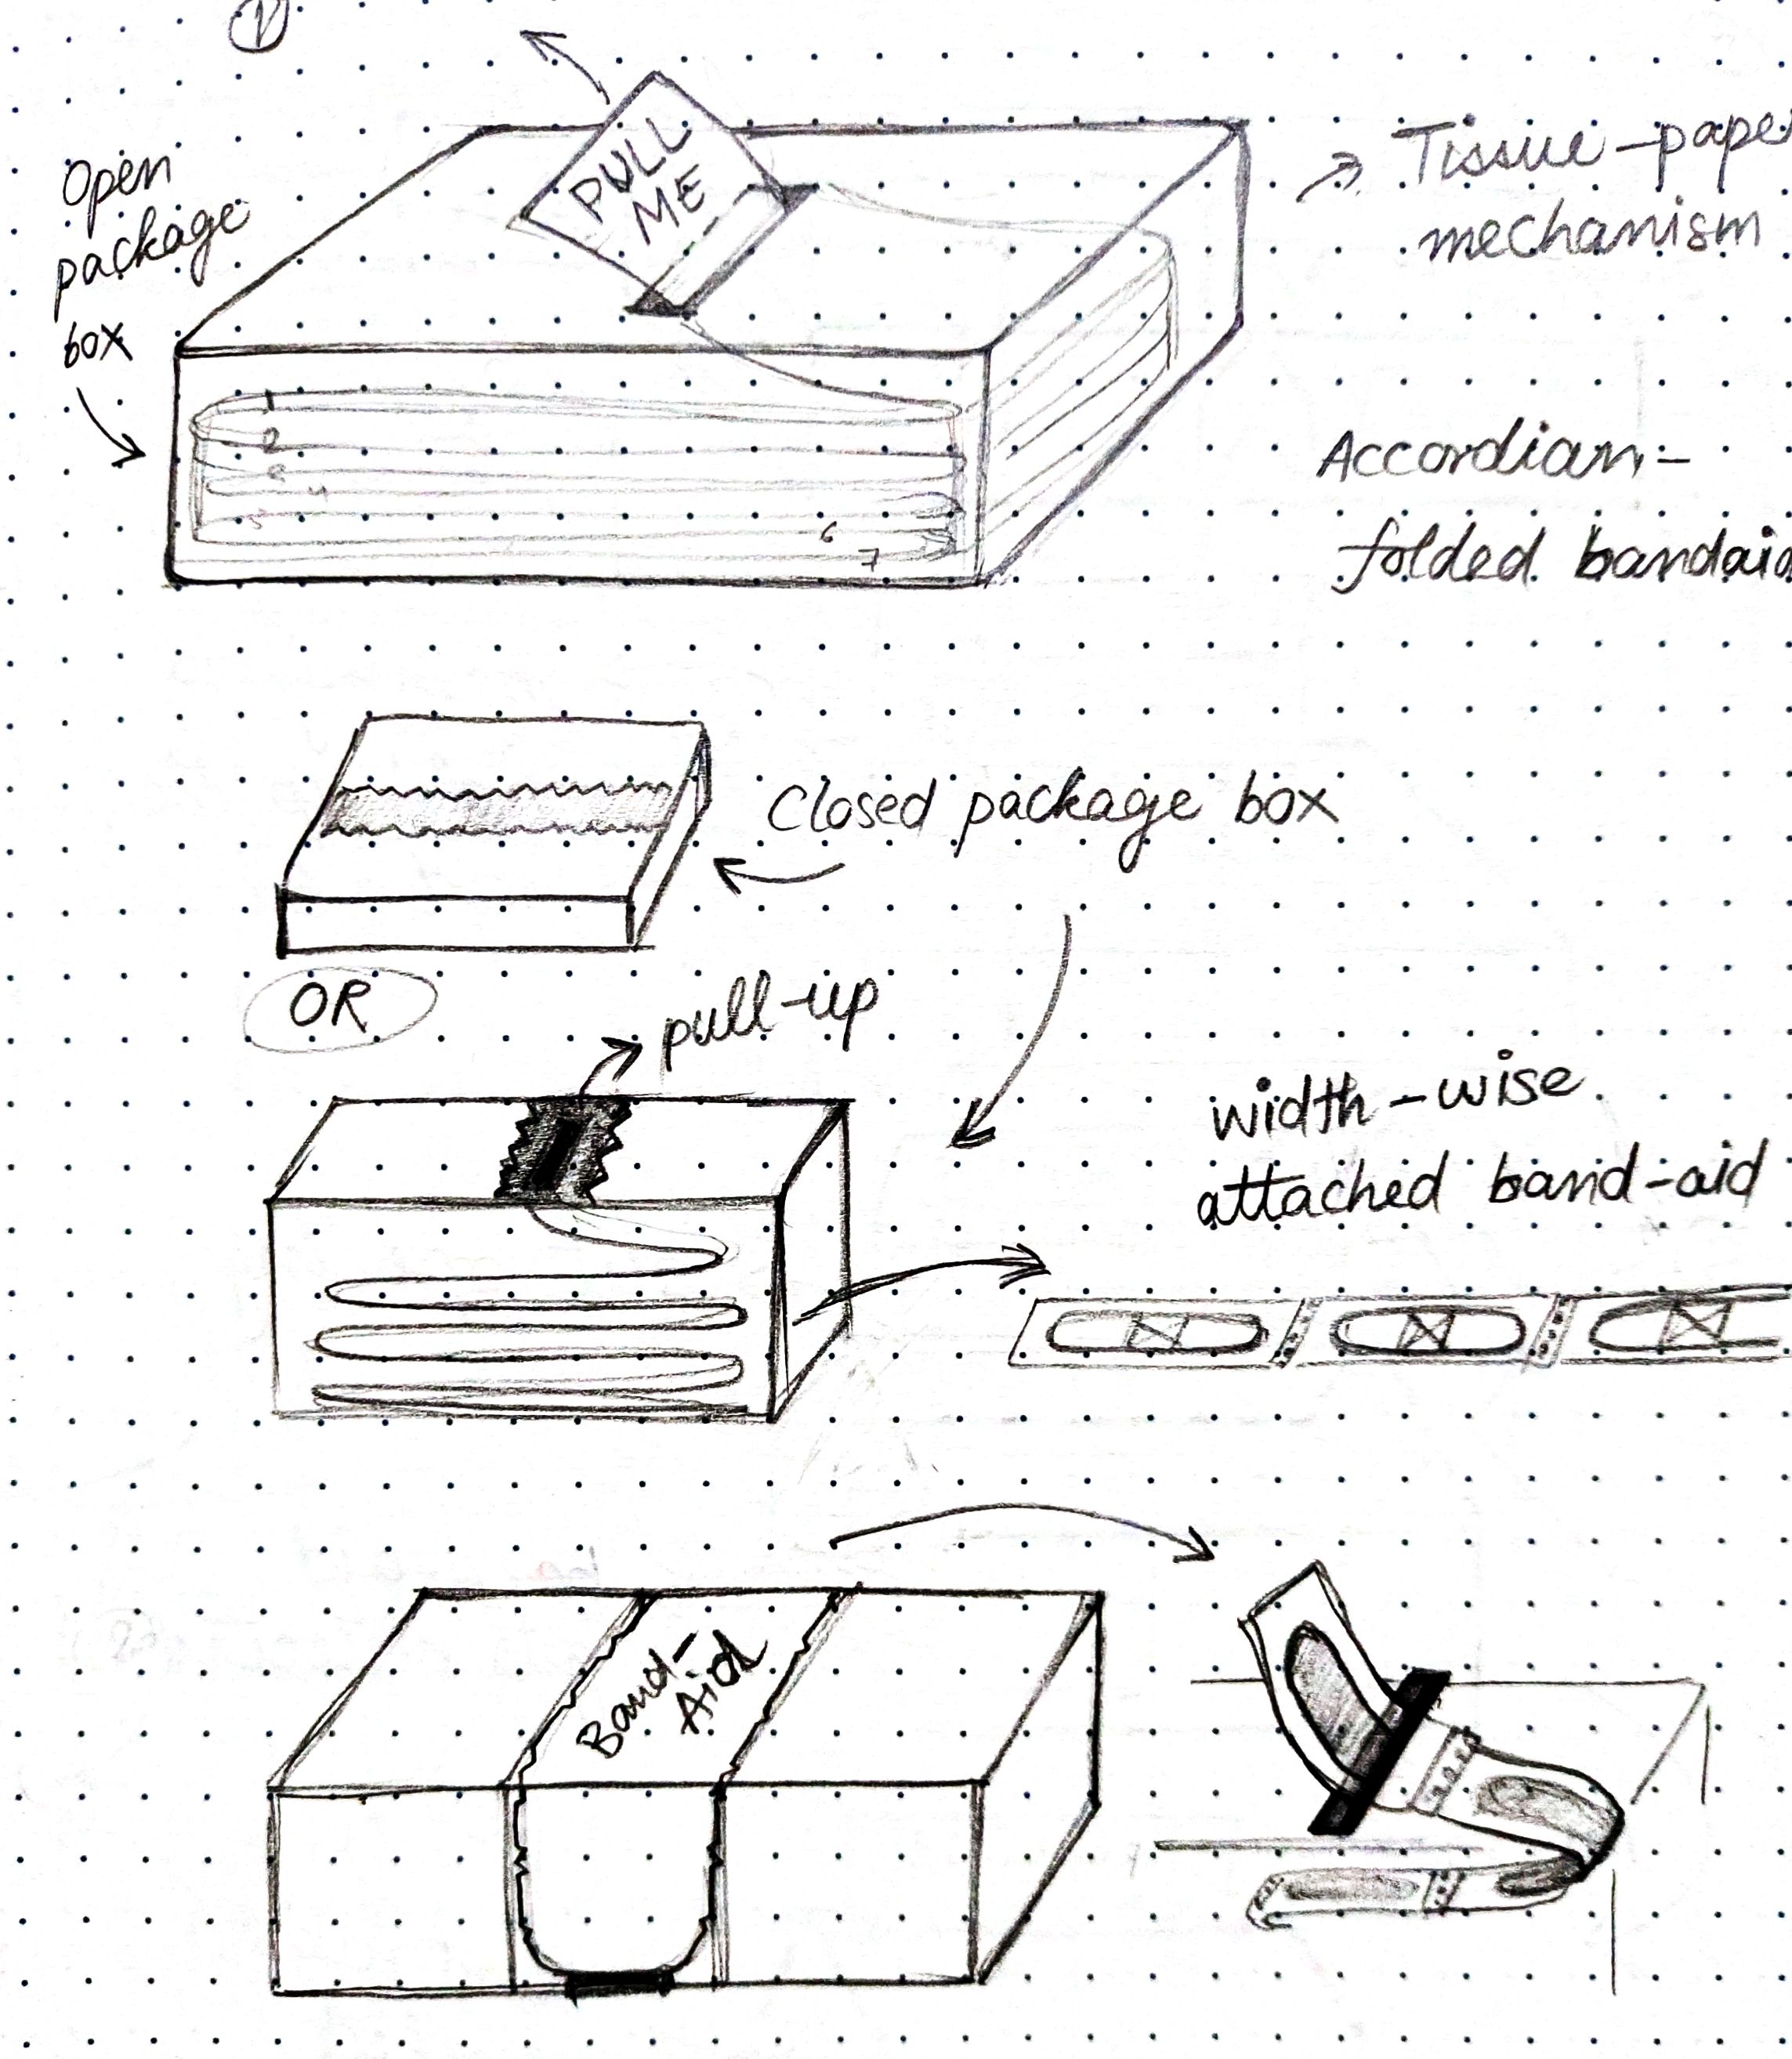 1
PULL
ME
Open
package
box
Tissue-pape
mechanism
1
2
3
4
5
6
7
Accordian-
folded bandaid
Closed package box
OR
pull-up
width-wise
attached band-aid
Band-
Aid